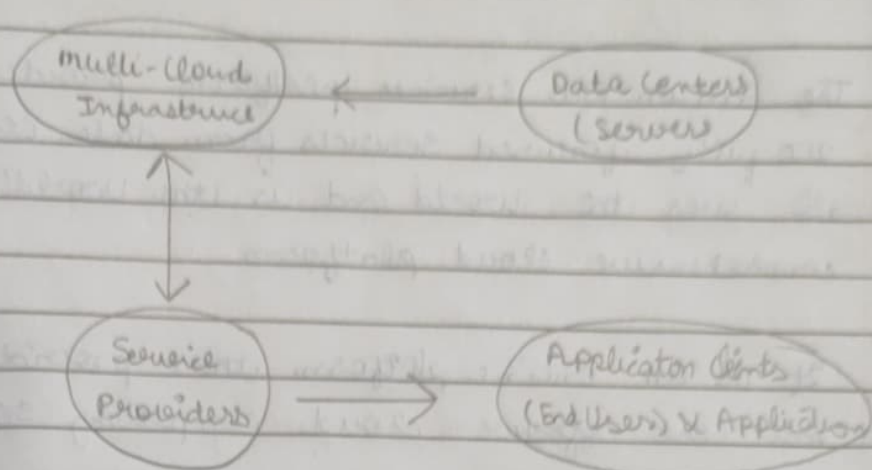 Multi-Cloud
Infrastruce
Data Centers
(Servers
Service
Providers
Applicaton Clints
(End Users) & Application